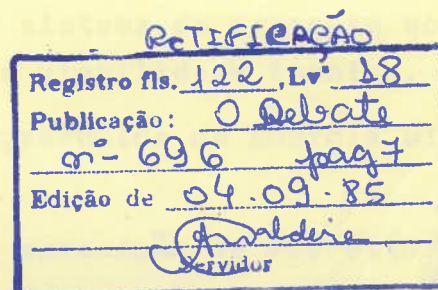 RETIFICAÇÃO
Registro fls. 122 , Lvº 18
Publicação: O Debate
nº- 696 pag 7
Edição de 04.09.85
Servidor